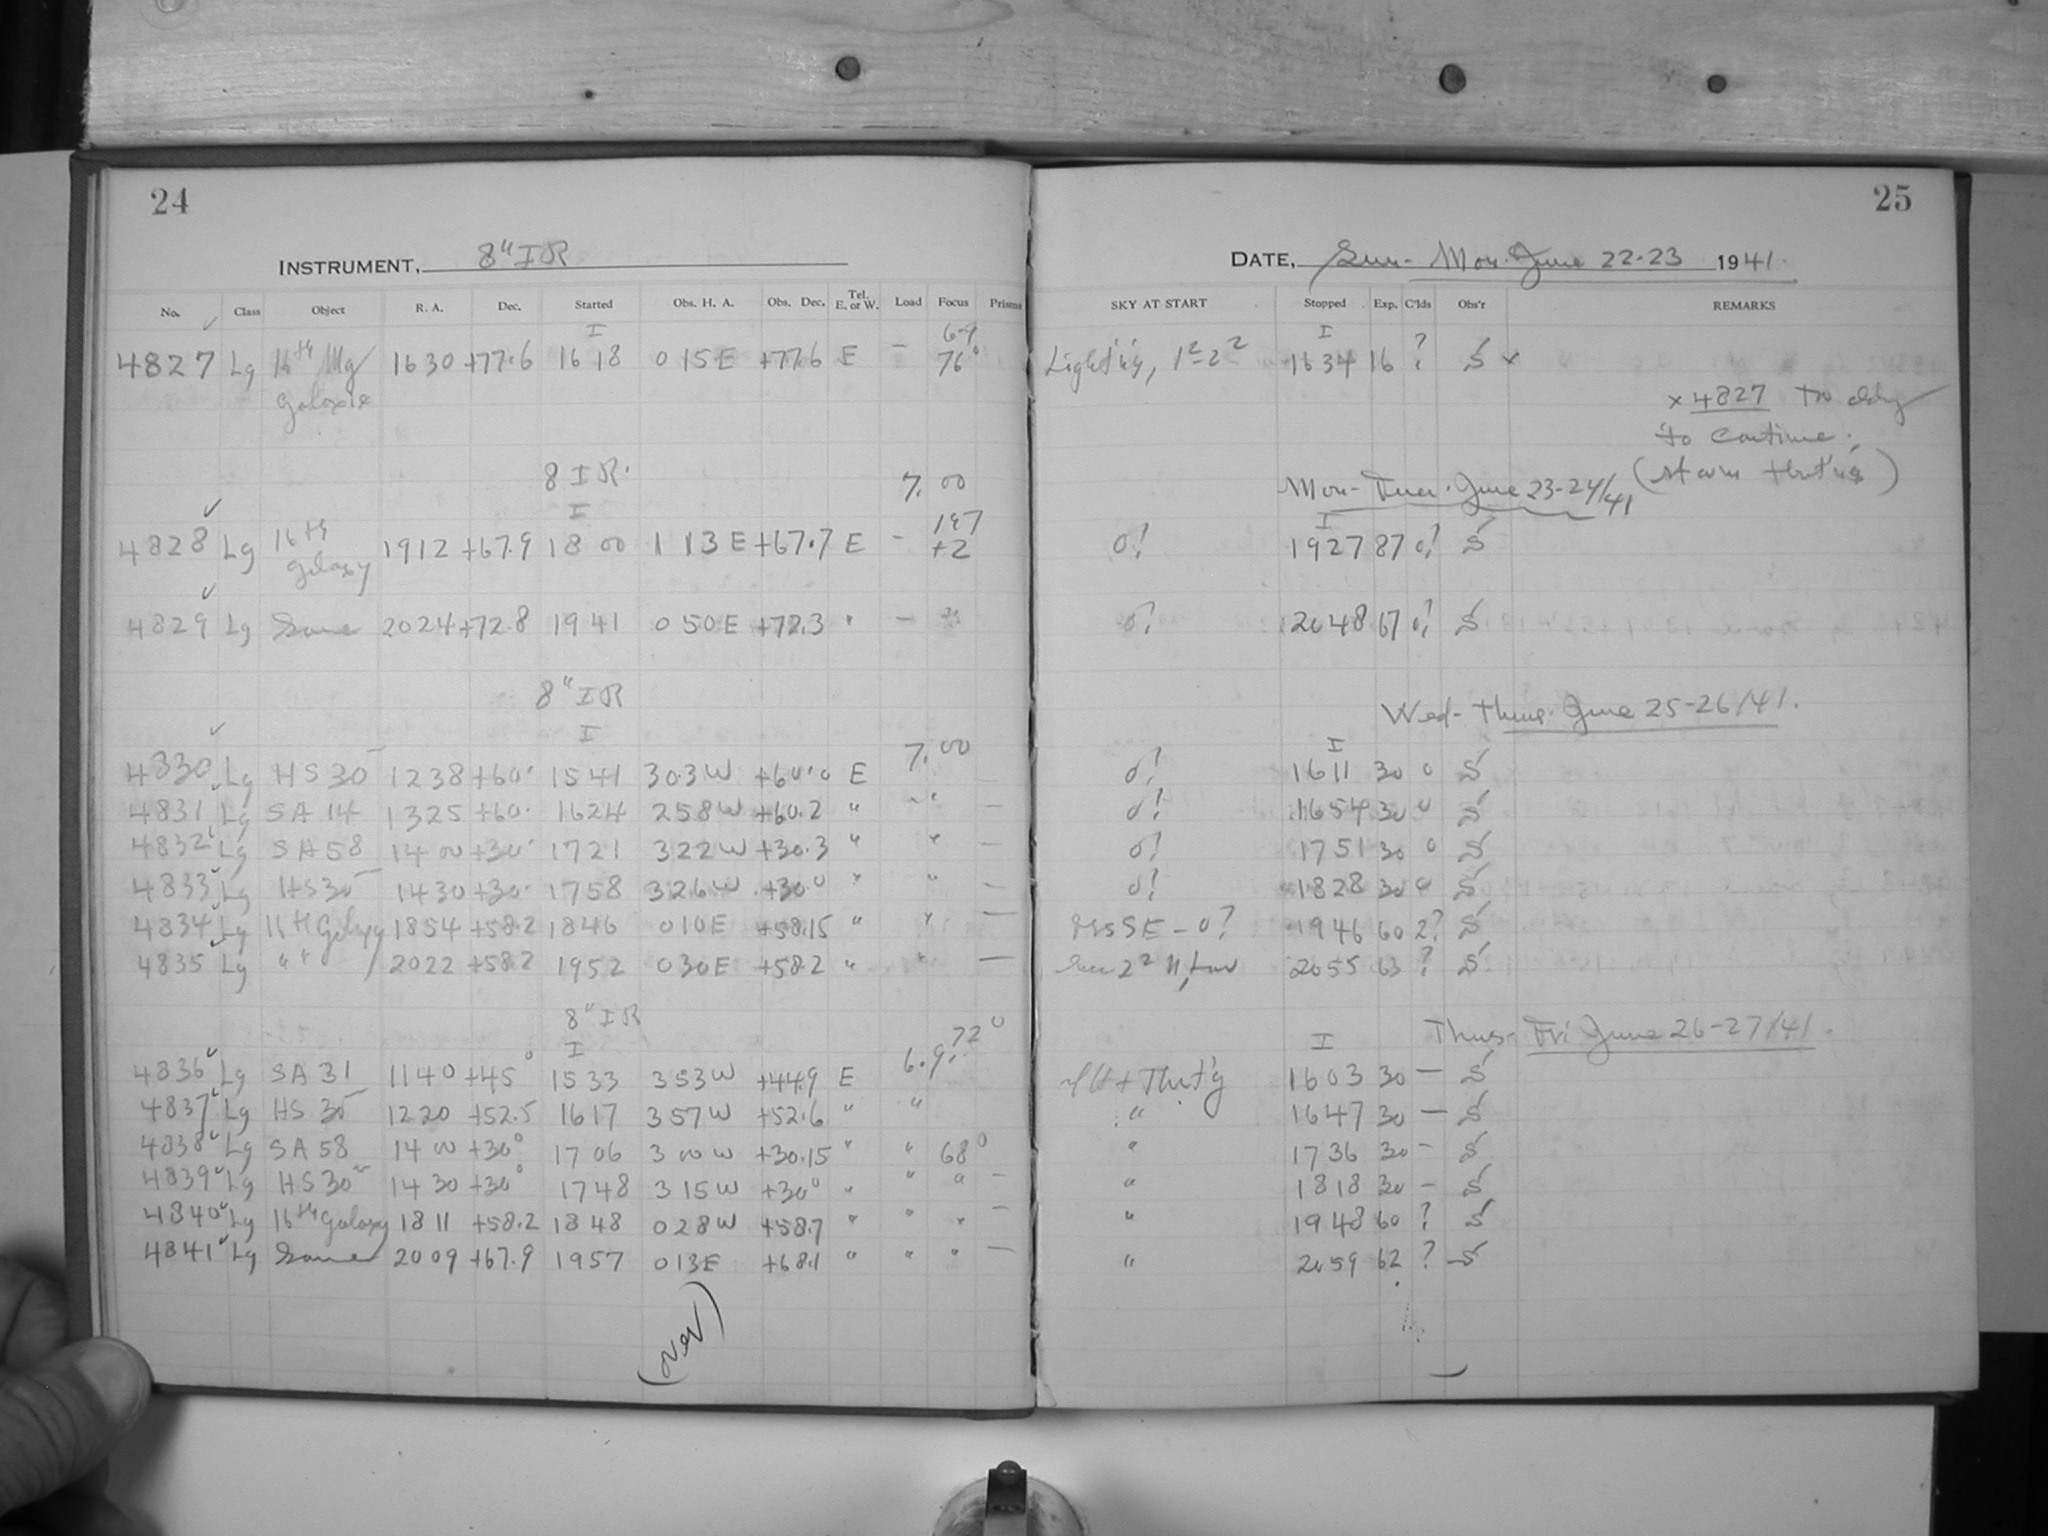 24
25
INSTRUMENT, 8" IR
DATE, Sun - Mon. June 22-23 1941.
No. Class Object R. A. Dec. Started Obs. H. A. Obs. Dec. Tel. E. or W. Load Focus Prisms SKY AT START Stopped Exp. C'lds Obs'r REMARKS
I I
4827 Lg 16th Mg 1630 +77.6 1618 0 15 E +77.6 E - 76° 1634 16 ? S x
Galaxie
x 4827
to continue.
8 IR. 7.00 Mon - Tues. June 23-24/41
I I
4828 Lg 16th 1912 +67.9 1800 1 13 E +67.7 E - +2 0? 1927 87 0? S
Galaxy
4829 Lg Same 2024 +72.8 1941 0 50 E +72.3 " - " 0? 2048 67 0? S
8" IR Wed - Thurs. June 25-26/41.
I I
4830 Lg HS 30 1238 +60° 1541 3 03 W +60.0 E 7.00 - 0? 1611 30 0 S
4831 Lg SA 14 1325 +60. 1624 2 58 W +60.2 " " - 0? 1654 30 0 S
4832 Lg SA 58 1400 +30° 1721 3 22 W +30.3 " " - 0? 1751 30 0 S
4833 Lg HS 30 1430 +30. 1758 3 26 W +30.0 " " - 0? 1828 30 0 S
4834 Lg 16th Galaxy 1854 +58.2 1846 0 10 E +58.15 " " - 1946 60 2? S
4835 Lg " " 2022 +58.2 1952 0 30 E +58.2 " " - 2055 63 ? S
8" IR Thurs - Fri June 26-27/41.
I I
4836 Lg SA 31 1140 +45° 1533 3 53 W +44.9 E 6.9 72° 1603 30 - S
4837 Lg HS 30 1220 +52.5 1617 3 57 W +52.6 " " " 1647 30 - S
4838 Lg SA 58 1400 +30° 1706 3 00 W +30.15 " " 68° " 1736 30 - S
4839 Lg HS 30 1430 +30° 1748 3 15 W +30° " " " - " 1818 30 - S
4840 Lg 16th Galaxy 1811 +58.2 1848 0 28 W +58.7 " " " - " 1948 60 ? S
4841 Lg Same 2009 +67.9 1957 0 13 E +68.1 " " " - " 2059 62 ? S
(over)